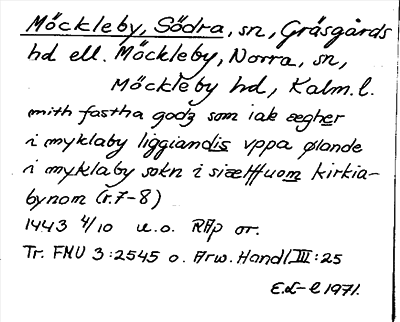 Möckleby, Södra, sn, Gräsgårds
hd ell. Möckleby, Norra, sn,
Möckleby hd, Kalm. l.
mith fastha godz som iak ægher
i myklaby liggiandis vppa ølande
i myklaby sokn i siælffuom kirkia-
bynom (r. 7-8)
1443 4/10 u.o. RAp or.
Tr. FMU 3:2545 o. Arw. Handl. III:25
E.d-l 1971.